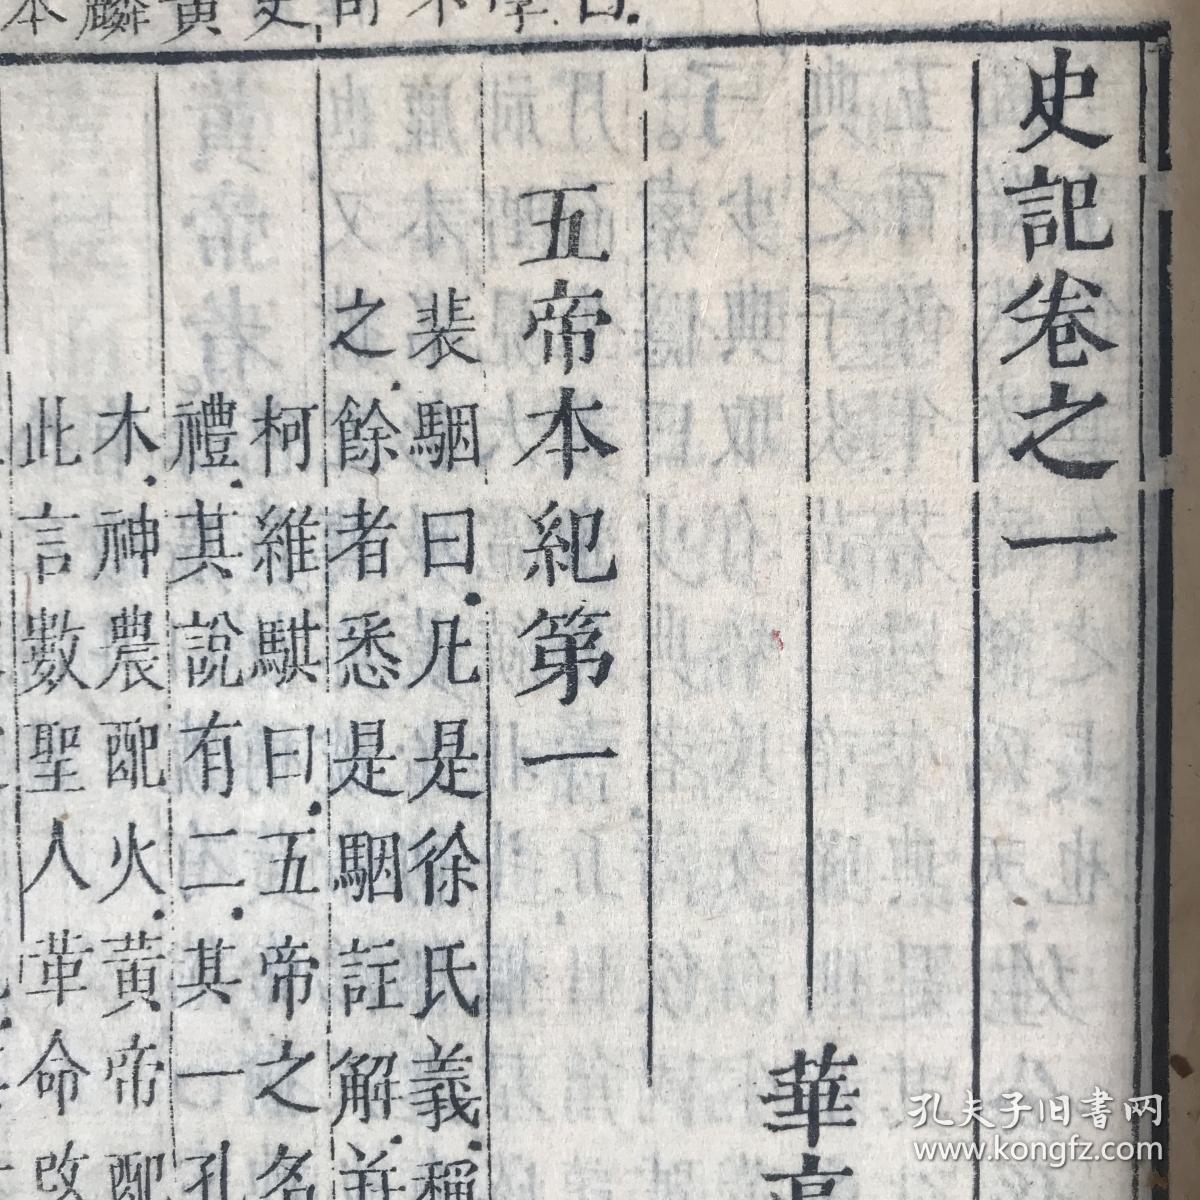 史記卷之一
華
五帝本紀第一
裴駰曰凡是徐氏義稱
之餘者悉是駰註解并
柯維騏曰五帝之名
禮其說有二其一孔
木神農配火黃帝配
此言數聖人革命改
孔夫子旧书网
www.kongfz.com